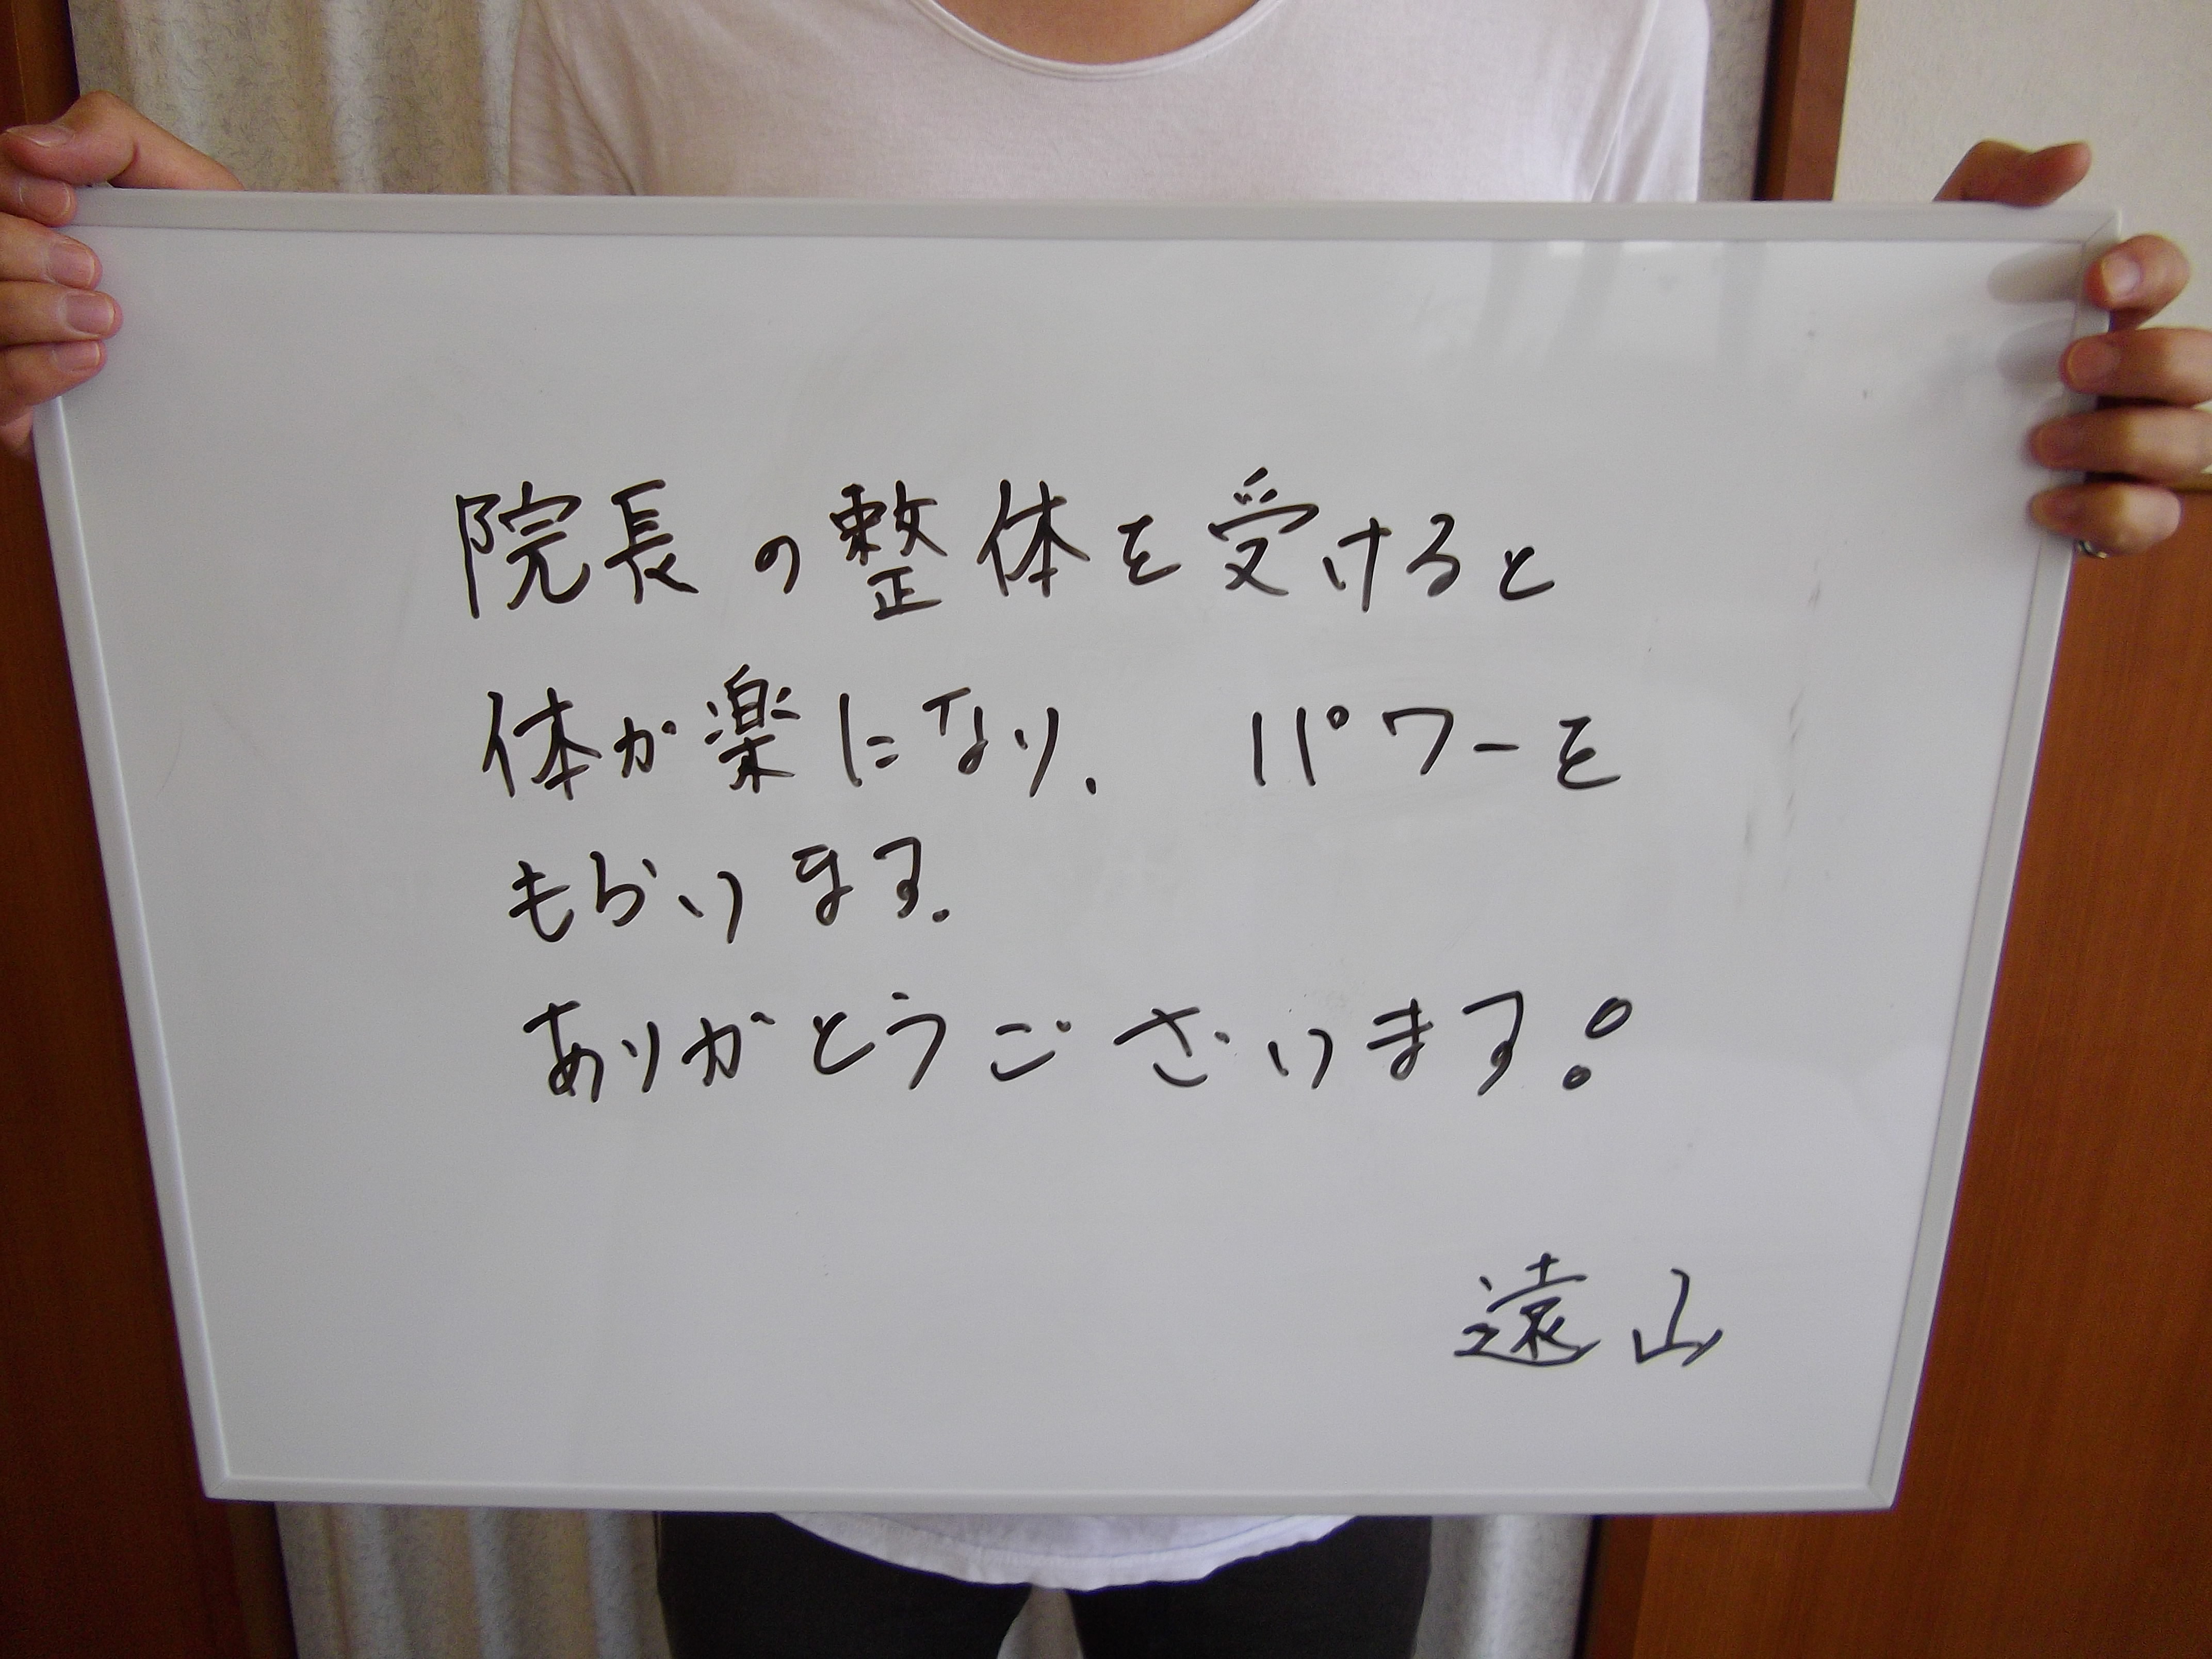 院長の整体を受けると
体が楽になり. パワーを
もらいます.
ありがとうございます!
遠山